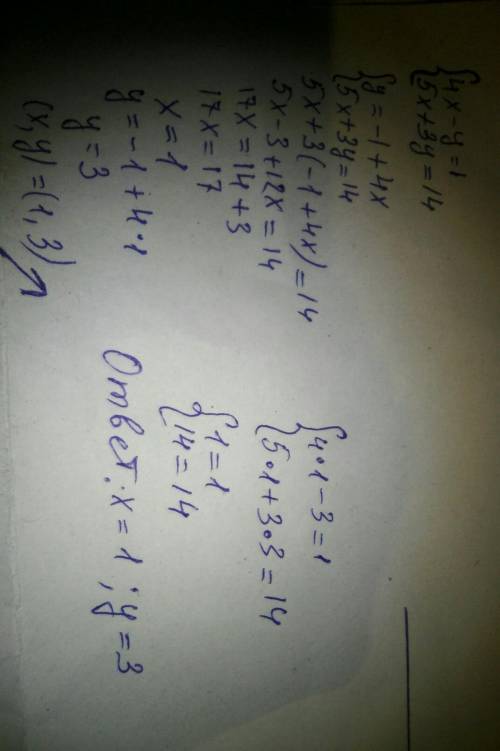 {4x-y=1
{5x+3y=14
{y=-1+4x
{5x+3y=14
5x+3(-1+4x)=14
5x-3+12x=14
17x=14+3
17x=17
x=1
y=-1+4•1
y=3
(x,y)=(1,3)
{4•1-3=1
{5•1+3•3=14
{1=1
{14=14
Ответ: x=1; y=3